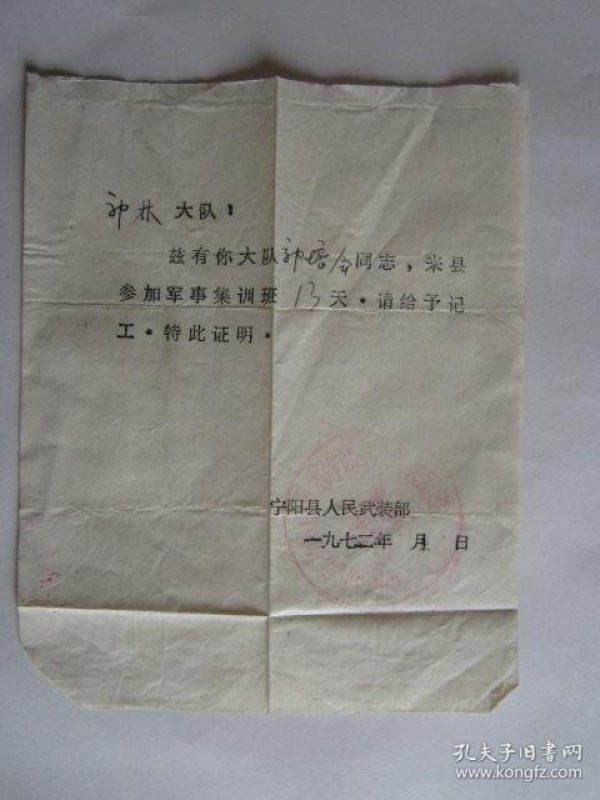 大队：
兹有你大队同志，来县
参加军事集训班13天。请给予记
工。特此证明。
宁阳县人民武装部
一九七二年 月 日
孔夫子旧书网
www.kongfz.com